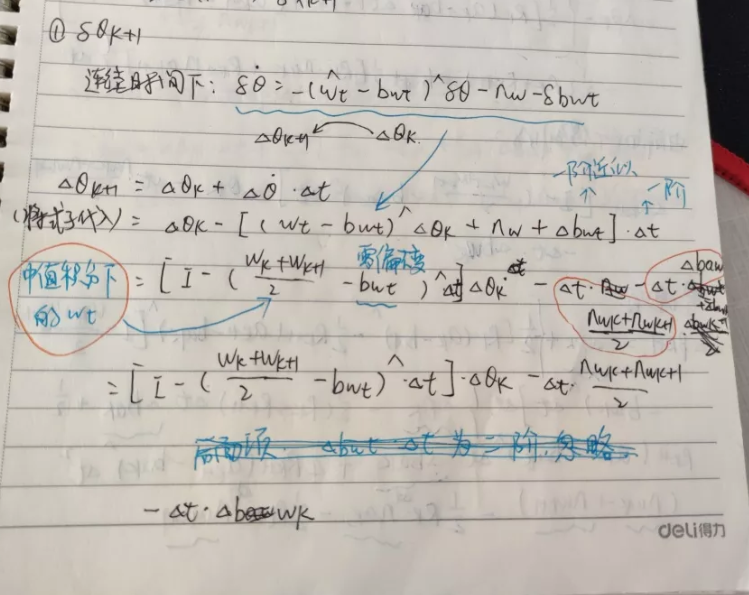 ① δθk+1
连续时间下: δθ̇ = -(ŵt - bwt)^ δθ - nw - δbwt
Δθk+1 ← Δθk
一阶近似 一阶
Δθk+1 = Δθk + Δθ̇ · Δt
(将式子代入) = Δθk - [(wt - bwt)^ Δθk + nw + Δbwt] · Δt
中值积分下的wt
零偏不变
= [I - ((wk + wk+1)/2 - bwt)^ Δt] Δθk - Δt · (nwk + nwk+1)/2 - Δt · Δbwk
= [I - ((wk + wk+1)/2 - bwt)^ · Δt] · Δθk - Δt · (nwk + nwk+1)/2
后面项 Δbwt · Δt 为二阶,忽略.
- Δt · Δbwk
deli得力